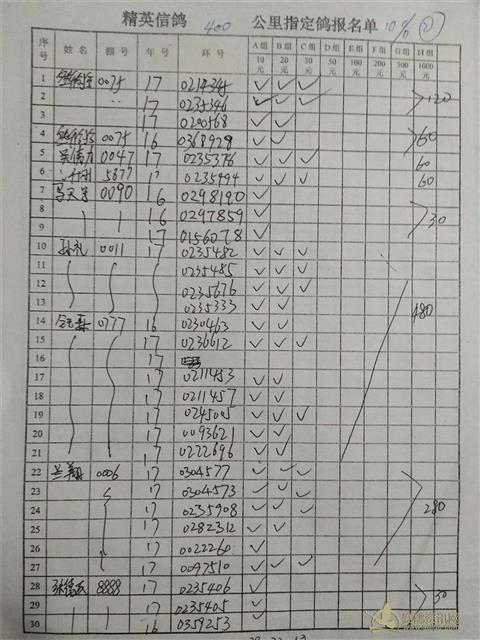 精英信鸽 400 公里指定鸽报名单 10%
序号 姓名 棚号 年号 环号 A组 B组 C组 D组 E组 F组 G组 H组
10元 20元 30元 50元 100元 200元 500元 1000元
1 0075 17 ✓ ✓ ✓
2 17 0235346 ✓ ✓ ✓ 120
3 17 0200568 ✓ ✓
4 0075 16 0368928 ✓ ✓ 60
5 0047 17 0235376 ✓ ✓ ✓ 60
6 17 0235994 ✓ ✓ ✓ 60
7 0090 16 0298190 ✓
8 16 0297859 ✓ 30
9 17 0156078 ✓
10 孙礼 0011 17 0235482 ✓ ✓ ✓
11 0235485 ✓ ✓ ✓
12 0235676 ✓ ✓ ✓
13 0235333 ✓ ✓ 480
14 0777 16 0230463 ✓ ✓
15 17 0236612 ✓ ✓ ✓
16 17
17 17 0211453 ✓ ✓
18 17 0211457 ✓ ✓
19 17 0245005 ✓ ✓ ✓
20 17 0093621 ✓ ✓
21 17 0222696 ✓ ✓
22 兰翔 0006 17 0304577 ✓ ✓ ✓
23 17 0304573 ✓ ✓ ✓
24 17 0235908 ✓ ✓ ✓ 280
25 17 0282312 ✓ ✓
26 17 0022260 ✓
27 17 0097510 ✓ ✓ ✓
28 8888 17 0235406 ✓
29 17 0235405 ✓ 30
30 16 0359253 ✓